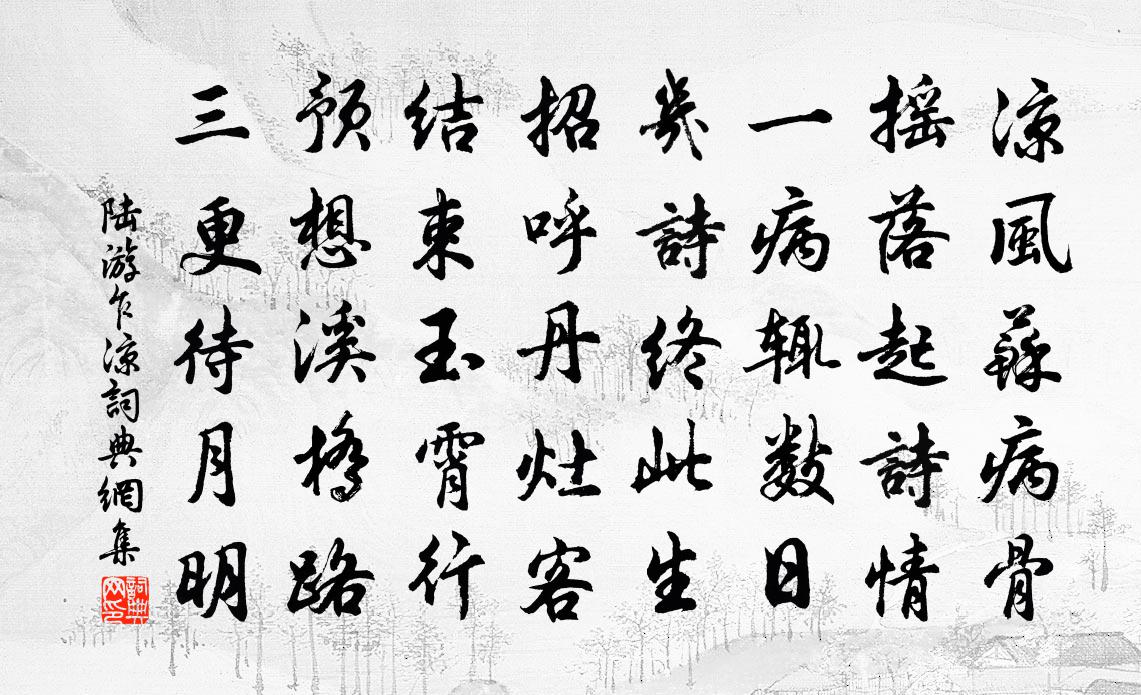 涼風蘇病骨
摇落起詩情
一病辄數日
幾詩終此生
招呼丹灶客
結束玉霄行
預想溪橋路
三更待月明
陆游乍涼詞典網集
詞典
网印